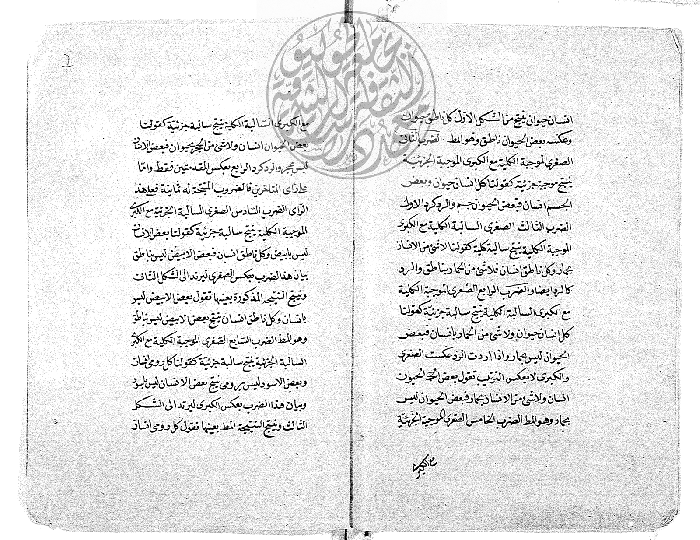 انسان حيوان ينتج من الشكل الاول كل ناطق حيوان
وعكسه بعض الحيوان ناطق وهو المط الضرب الثاني
الصغرى الموجبة الكلية مع الكبرى الموجبة الجزئية
ينتج موجبة جزئية كقولنا كل انسان حيوان وبعض
الجسم انسان فبعض الحيوان جسم والرد كرد الاول
الضرب الثالث الصغرى السالبة الكلية مع الكبرى
الموجبة الكلية ينتج سالبة كلية كقولنا لاشئ من الانسان
بحمار وكل ناطق انسان فلاشئ من الحمار بناطق والرد
كالرد ايضا والضرب الرابع الصغرى الموجبة الكلية
مع الكبرى السالبة الكلية ينتج سالبة جزئية كقولنا
كل انسان حيوان ولاشئ من الحمار بانسان فبعض
الحيوان ليس بحمار واذا اردت الرد عكست الصغرى
والكبرى لا بعكس الترتيب تقول بعض الحيوان
انسان ولاشئ من الانسان بحمار فبعض الحيوان ليس
بحمار وهو المط الضرب الخامس الصغرى الموجبة الجزئية
مع الكبرى
مع الكبرى السالبة الكلية ينتج سالبة جزئية كقولنا
بعض الحيوان انسان ولاشئ من الحجر بحيوان فبعض الانسان
ليس بحجر والرد كرد الرابع بعكس المقدمتين فقط واما
على راى المتاخرين فالضروب المنتجة له ثمانية فعلى هذا
الراى الضرب السادس الصغرى السالبة الجزئية مع الكبرى
الموجبة الكلية ينتج سالبة جزئية كقولنا بعض الانسان
ليس بابيض وكل ناطق انسان فبعض الابيض ليس ناطق
بيان هذا الضرب بعكس الصغرى ليرتد الى الشكل الثانى
وينتج النتيجة المذكورة بعينها تقول بعض الابيض ليس
بانسان وكل ناطق انسان ينتج بعض الابيض ليس بناطق
وهو المط الضرب السابع الصغرى الموجبة الكلية مع الكبرى
السالبة الجزئية ينتج سالبة جزئية كقولنا كل رومى انسان
وبعض الاسود ليس برومى ينتج بعض الانسان ليس باسود
وبيان هذا الضرب بعكس الكبرى ليرتد الى الشكل
الثالث وينتج النتيجة المط بعينها فنقول كل رومى انسان